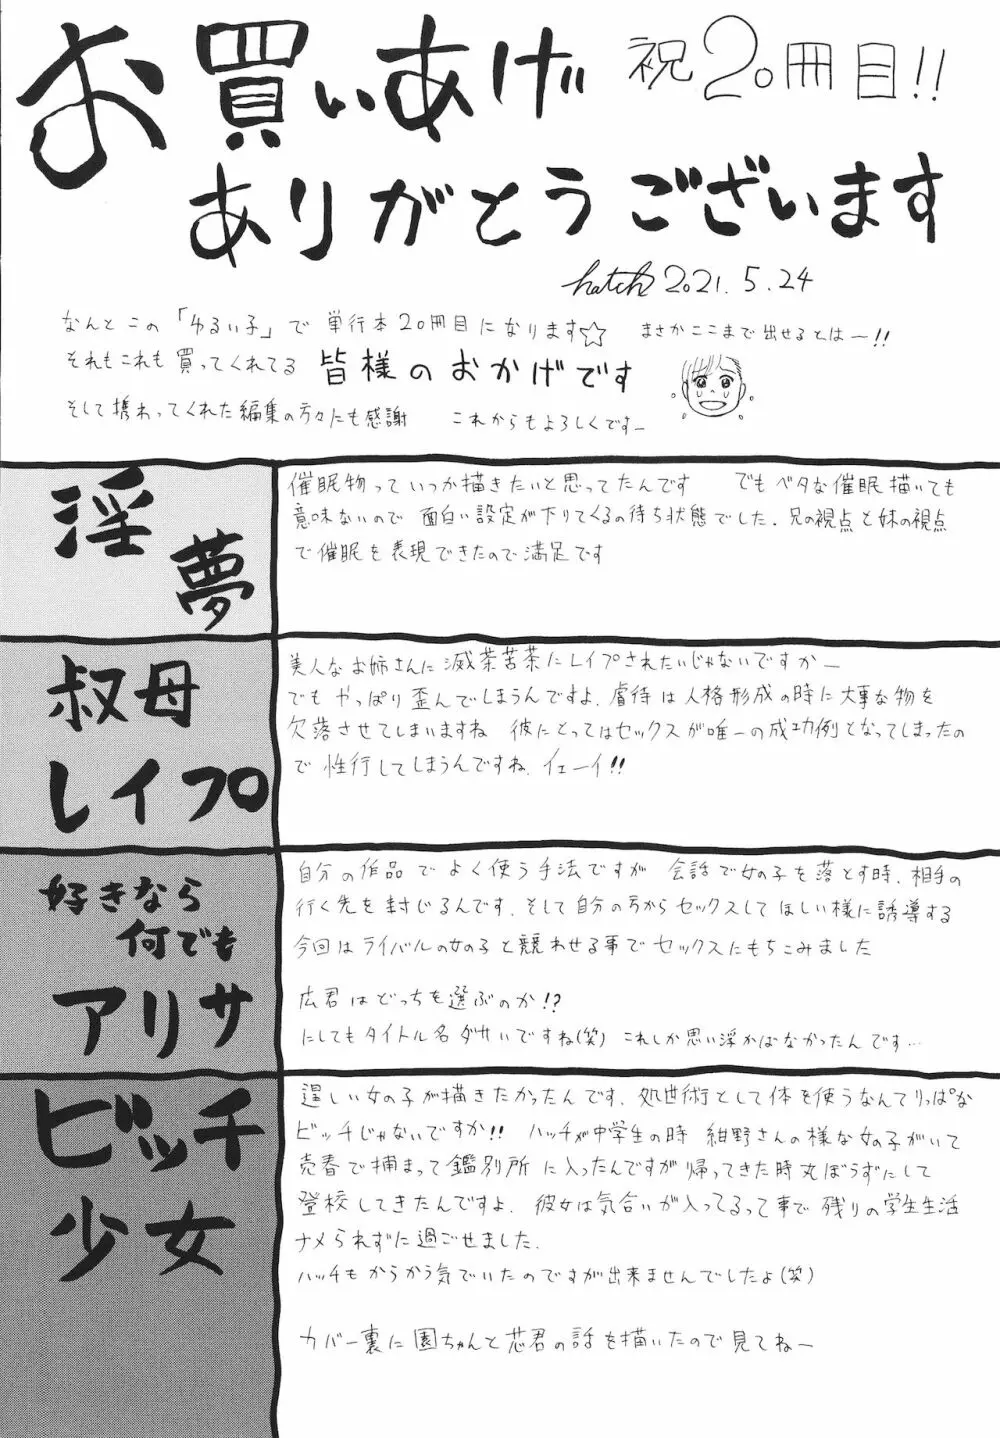 お買いあげ
祝20冊目!!
ありがとうございます
hatch 2021.5.24
なんとこの「ゆるい子」で 単行本20冊目になります☆ まさかここまで出せるとはー!!
それもこれも買ってくれてる 皆様のおかげです
そして携わってくれた編集の方々にも感謝 これからもよろしくですー
淫夢
催眠物っていつか描きたいと思ってたんです でもベタな催眠描いても
意味ないので 面白い設定が下りてくるの待ち状態でした.兄の視点と妹の視点
で催眠を表現できたので満足です
叔母
レイプ
美人なお姉さんに滅茶苦茶にレイプされたいじゃないですかー
でもやっぱり歪んでしまうんですよ.虐待は人格形成の時に大事な物を
欠落させてしまいますね 彼にとってはセックスが唯一の成功例となってしまったの
で 性行してしまうんですね.イェーイ!!
好きなら
何でも
アリサ
自分の作品でよく使う手法ですが 会話で女の子を落とす時.相手の
行く先を封じるんです.そして自分の方からセックスしてほしい様に誘導する
今回はライバルの女の子と競わせる事でセックスにもちこみました
広君はどっちを選ぶのか!?
にしてもタイトル名ダサいですね(笑) これしか思い浮かばなかったんです…
ビッチ
少女
逞しい女の子が描きたかったんです.処世術として体を使うなんてりっぱな
ビッチじゃないですか!! ハッチが中学生の時 紺野さんの様な女の子がいて
売春で捕まって鑑別所に入ったんですが帰ってきた時丸ぼうずにして
登校してきたんですよ.彼女は気合いが入ってるって事で残りの学生生活
ナメられずに過ごせました.
ハッチもからかう気でいたのですが出来ませんでしたよ(笑)
カバー裏に園ちゃんと芯君の話を描いたので見てねー